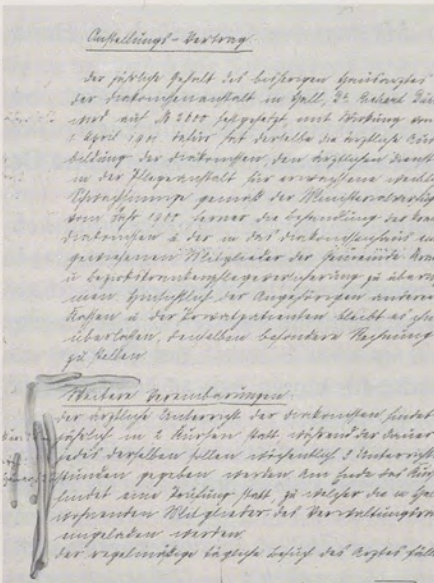 Anstellungs-Vertrag.
Der jährliche Gehalt des bisherigen Hausarztes
der Diakonissenanstalt in Hall, Dr. Richard Dür
wird auf M 2600 festgesetzt, mit Wirkung vom
1 April 1901 dafür hat derselbe die ärztliche
bildung der Diakonissen, den ärztlichen Dienst
in der Pflegeanstalt für erwachsene weibliche
Schwachsinnige gemäß der Ministerialverfüg
vom Jahr 1900, ferner die Behandlung der
Diakonissen u. der in das Diakonissenhaus auf
genommenen Mitglieder der Gemeinde
u Bezirkskrankenpflegeversicherung zu über
men. Hinsichtlich der Angehörigen anderer
Kassen u. der Privatpatienten bleibt es ihm
überlassen, denselben besondere Rechnung
zu stellen.
Weitere Vereinbarungen.
Der ärztliche Unterricht der Diakonissen findet
jährlich in 2 Kursen statt, während der Dauer
jedes derselben sollen wöchentlich 3 Unterrichts
stunden gegeben werden. Am Ende des Kurs
findet eine Prüfung statt, zu welcher die in Hall
wohnenden Mitglieder des Verwaltungsra
eingeladen werden.
Der regelmäßige tägliche Besuch des Arztes fällt